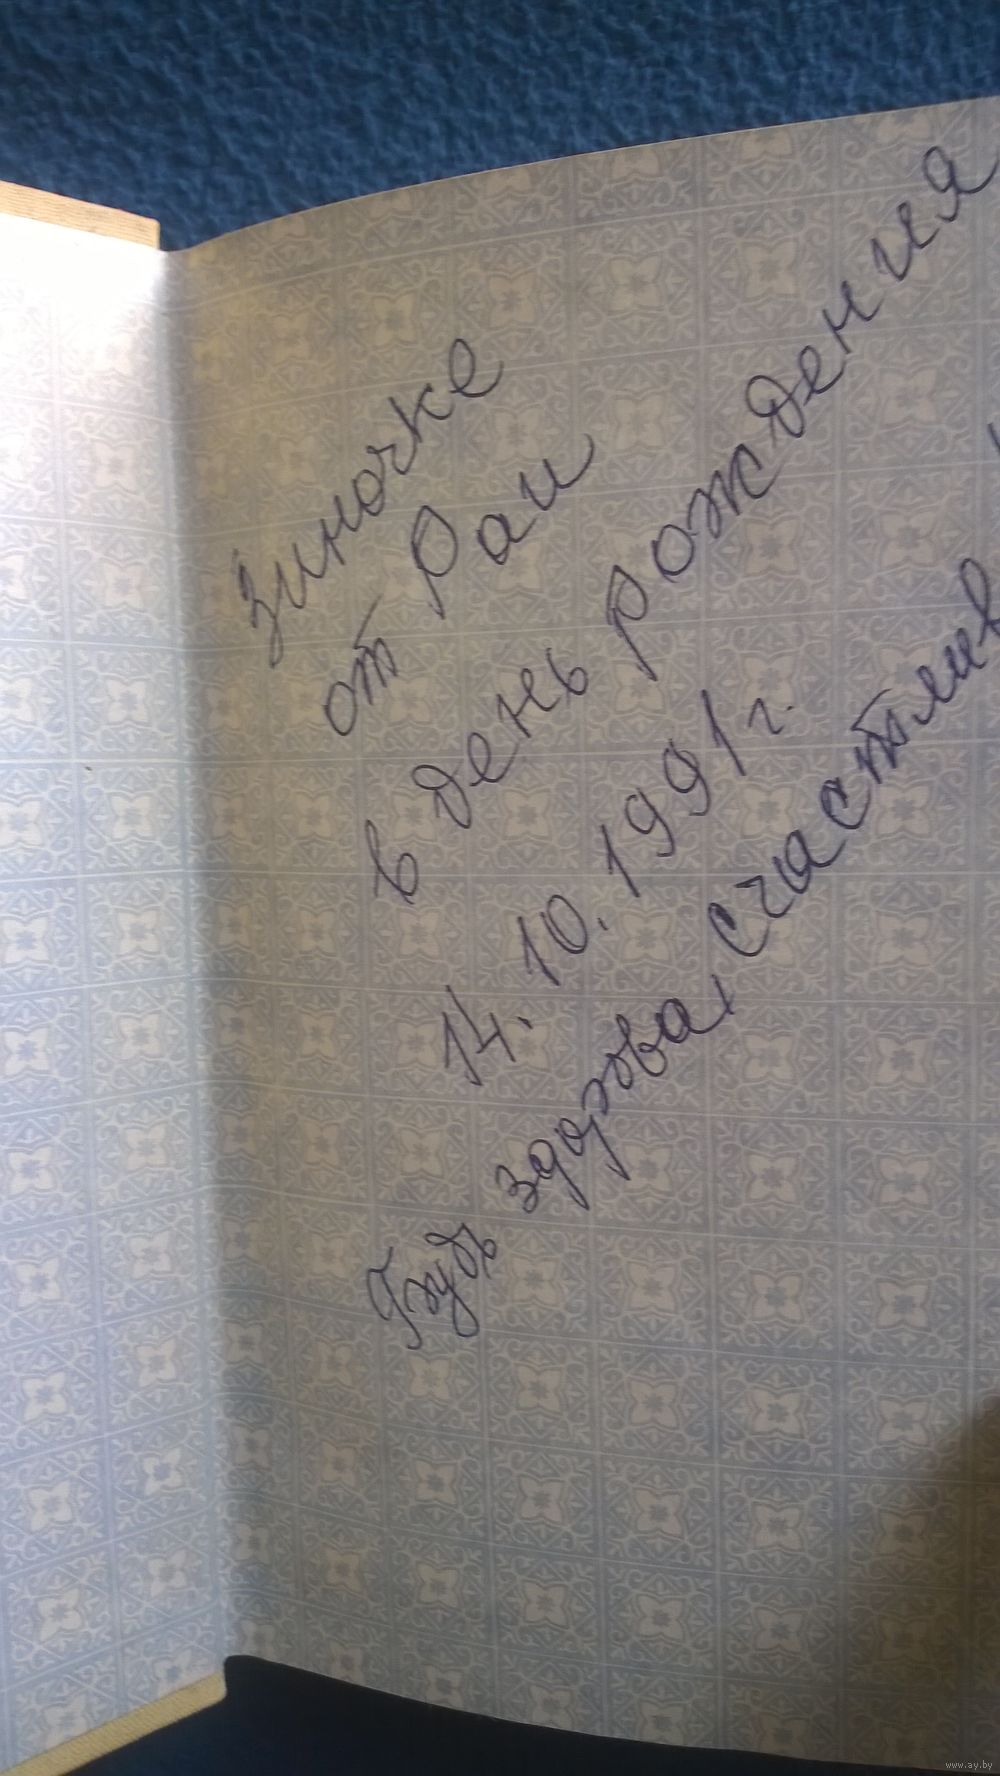 Зиночке
от Раи
в день рождения
14. 10. 1991 г.
Будь здорова, счастлив
www.ay.by